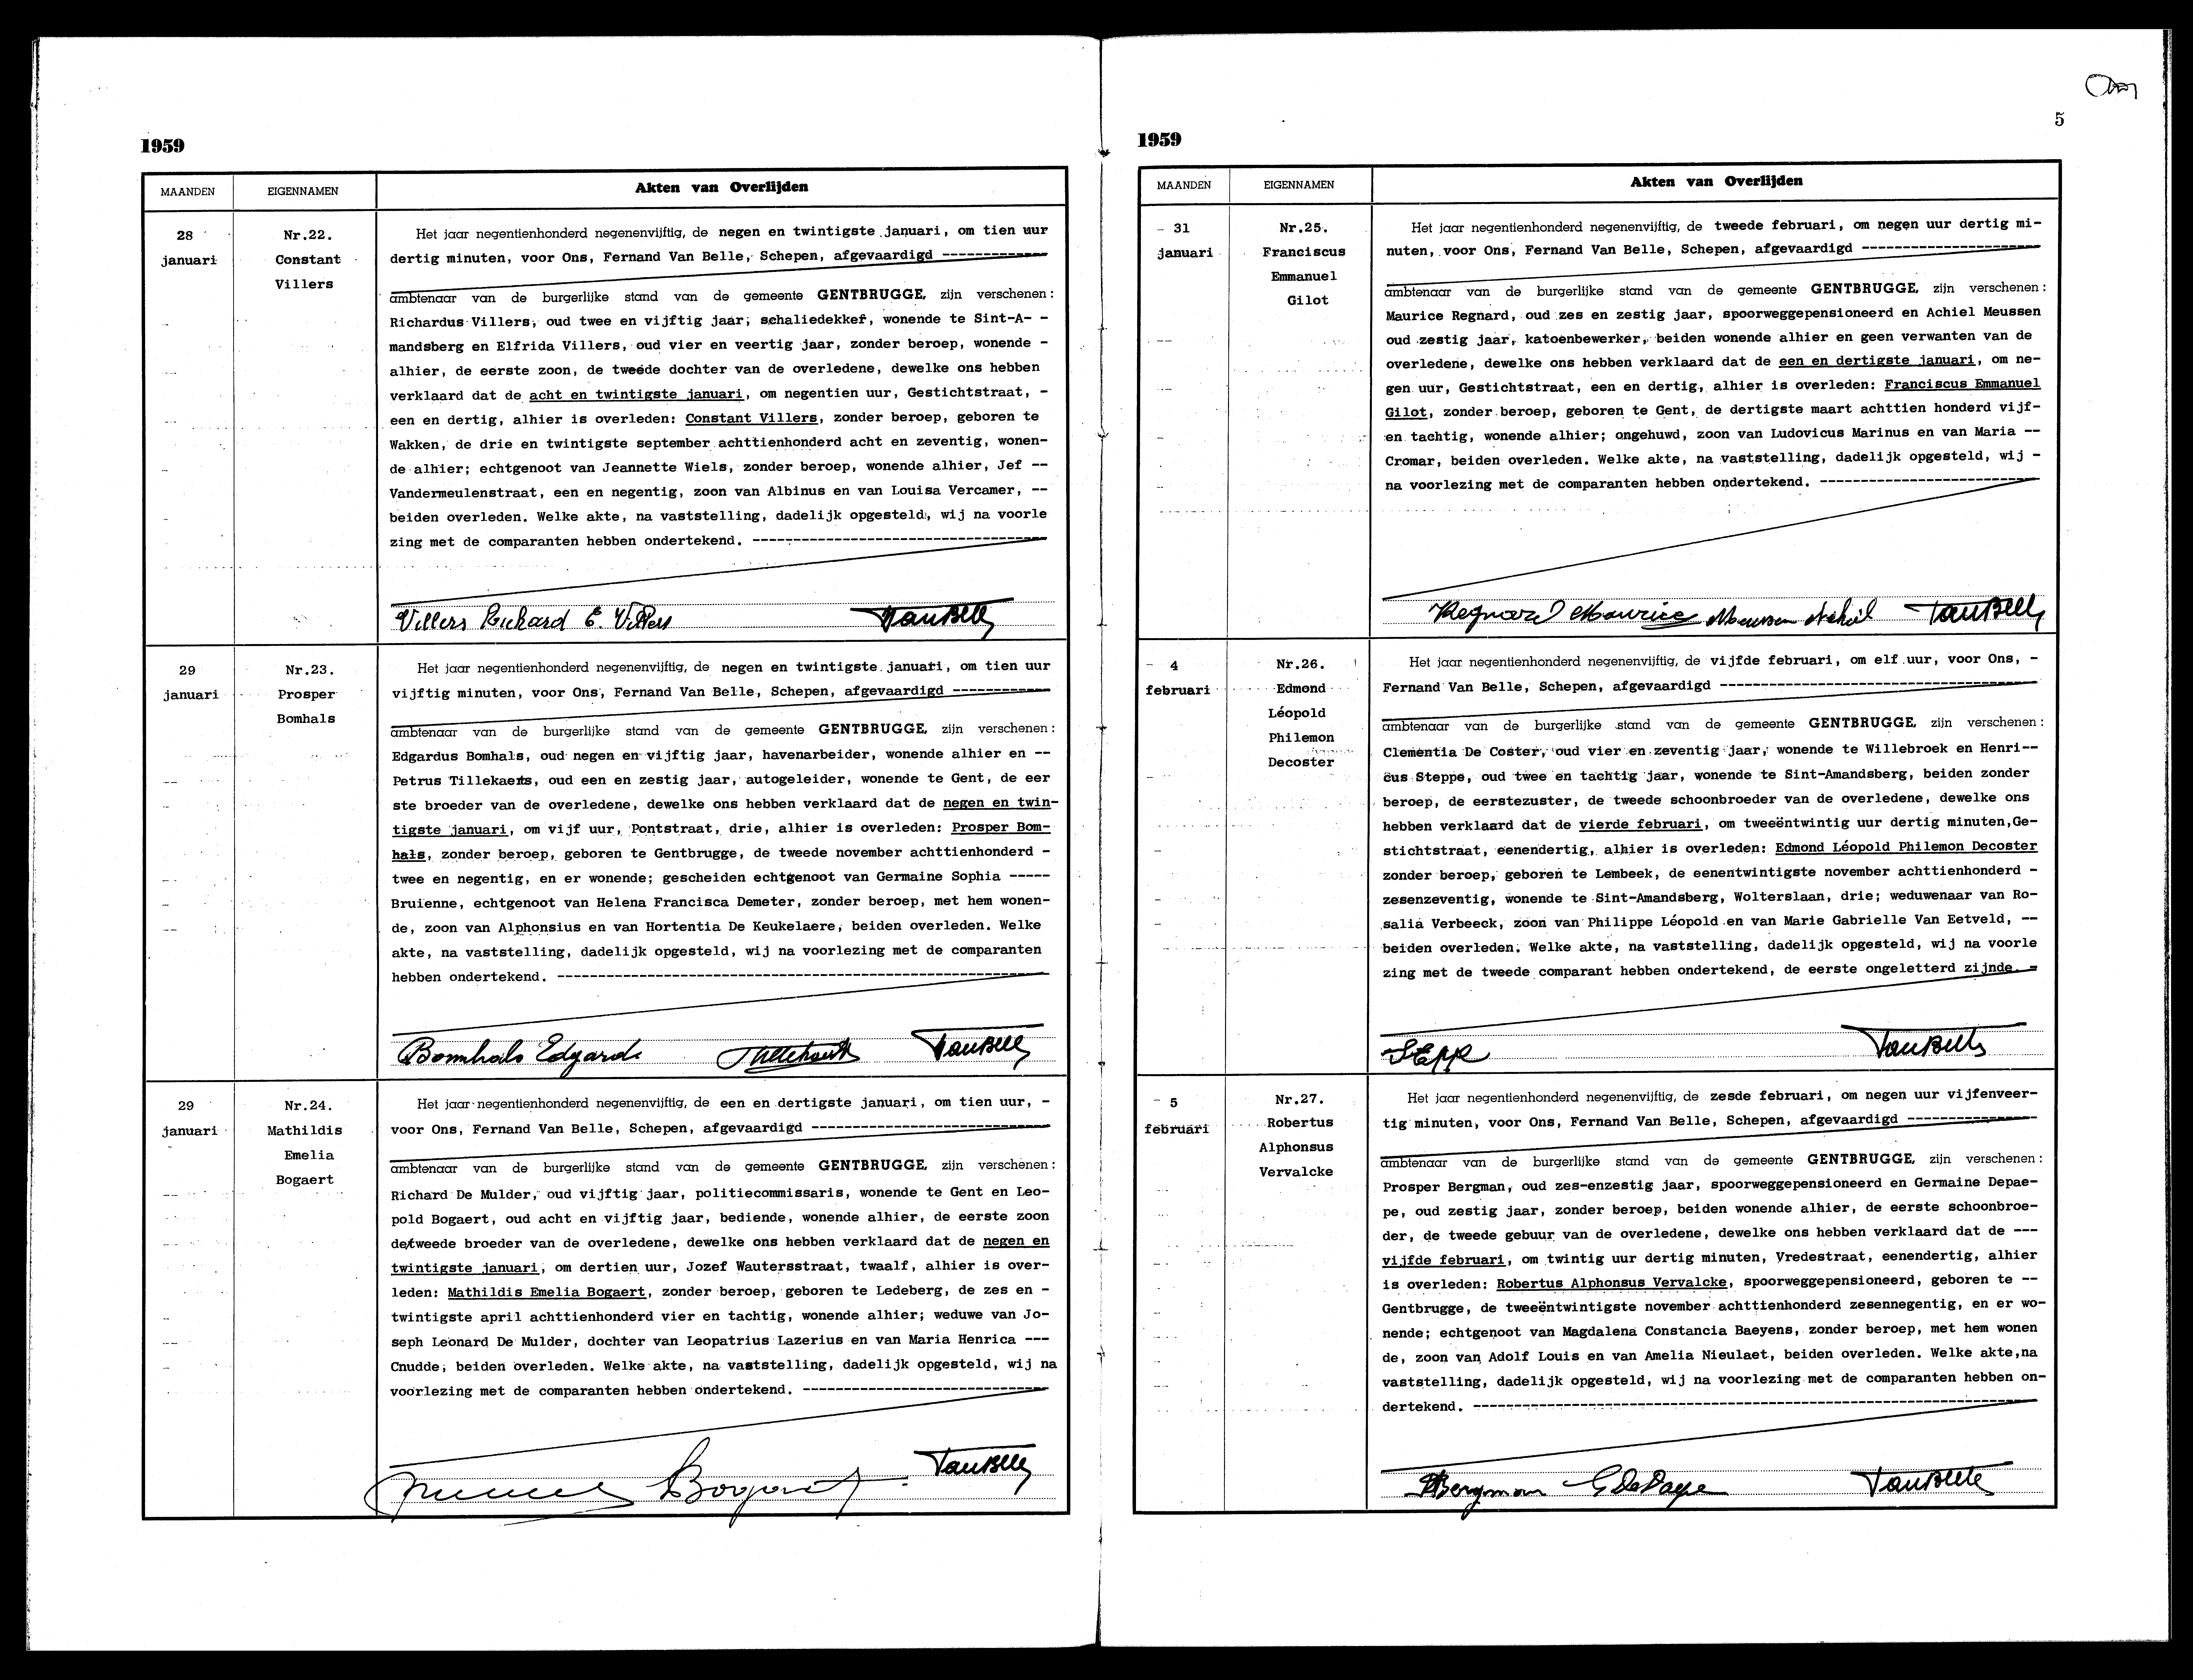 1959
MAANDEN
EIGENNAMEN
Akten van Overlijden
28
januari
Nr.22.
Constant
Villers
Het jaar negentienhonderd negenenvijftig, de negen en twintigste januari, om tien uur
dertig minuten, voor Ons, Fernand Van Belle, Schepen, afgevaardigd -------------
ambtenaar van de burgerlijke stand van de gemeente GENTBRUGGE, zijn verschenen:
Richardus Villers, oud twee en vijftig jaar, schaliedekker, wonende te Sint-A- -
mandsberg en Elfrida Villers, oud vier en veertig jaar, zonder beroep, wonende -
alhier, de eerste zoon, de tweede dochter van de overledene, dewelke ons hebben
verklaard dat de acht en twintigste januari, om negentien uur, Gestichtstraat, -
een en dertig, alhier is overleden: Constant Villers, zonder beroep, geboren te
Wakken, de drie en twintigste september achttienhonderd acht en zeventig, wonen-
de alhier; echtgenoot van Jeannette Wiels, zonder beroep, wonende alhier, Jef --
Vandermeulenstraat, een en negentig, zoon van Albinus en van Louisa Vercamer, --
beiden overleden. Welke akte, na vaststelling, dadelijk opgesteld, wij na voorle
zing met de comparanten hebben ondertekend. ------------------------------------
Villers Richard E. Villers VanBelle
29
januari
Nr.23.
Prosper
Bomhals
Het jaar negentienhonderd negenenvijftig, de negen en twintigste januari, om tien uur
vijftig minuten, voor Ons, Fernand Van Belle, Schepen, afgevaardigd ------------
ambtenaar van de burgerlijke stand van de gemeente GENTBRUGGE, zijn verschenen:
Edgardus Bomhals, oud negen en vijftig jaar, havenarbeider, wonende alhier en --
Petrus Tillekaerts, oud een en zestig jaar, autogeleider, wonende te Gent, de eer
ste broeder van de overledene, dewelke ons hebben verklaard dat de negen en twin-
tigste januari, om vijf uur, Pontstraat, drie, alhier is overleden: Prosper Bom-
hals, zonder beroep, geboren te Gentbrugge, de tweede november achttienhonderd -
twee en negentig, en er wonende; gescheiden echtgenoot van Germaine Sophia -----
Bruienne, echtgenoot van Helena Francisca Demeter, zonder beroep, met hem wonen-
de, zoon van Alphonsius en van Hortentia De Keukelaere, beiden overleden. Welke
akte, na vaststelling, dadelijk opgesteld, wij na voorlezing met de comparanten
hebben ondertekend. ------------------------------------------------------------
Bomhals Edgard VanBelle
29
januari
Nr.24.
Mathildis
Emelia
Bogaert
Het jaar negentienhonderd negenenvijftig, de een en dertigste januari, om tien uur, -
voor Ons, Fernand Van Belle, Schepen, afgevaardigd -----------------------------
ambtenaar van de burgerlijke stand van de gemeente GENTBRUGGE, zijn verschenen:
Richard De Mulder, oud vijftig jaar, politiecommissaris, wonende te Gent en Leo-
pold Bogaert, oud acht en vijftig jaar, bediende, wonende alhier, de eerste zoon
de/tweede broeder van de overledene, dewelke ons hebben verklaard dat de negen en
twintigste januari, om dertien uur, Jozef Wautersstraat, twaalf, alhier is over-
leden: Mathildis Emelia Bogaert, zonder beroep, geboren te Ledeberg, de zes en -
twintigste april achttienhonderd vier en tachtig, wonende alhier; weduwe van Jo-
seph Leonard De Mulder, dochter van Leopatrius Lazerius en van Maria Henrica ---
Cnudde, beiden overleden. Welke akte, na vaststelling, dadelijk opgesteld, wij na
voorlezing met de comparanten hebben ondertekend. ------------------------------
Bogaert VanBelle
5
1959
MAANDEN
EIGENNAMEN
Akten van Overlijden
31
januari
Nr.25.
Franciscus
Emmanuel
Gilot
Het jaar negentienhonderd negenenvijftig, de tweede februari, om negen uur dertig mi-
nuten, voor Ons, Fernand Van Belle, Schepen, afgevaardigd ----------------------
ambtenaar van de burgerlijke stand van de gemeente GENTBRUGGE, zijn verschenen:
Maurice Regnard, oud zes en zestig jaar, spoorweggepensioneerd en Achiel Meussen
oud zestig jaar, katoenbewerker, beiden wonende alhier en geen verwanten van de
overledene, dewelke ons hebben verklaard dat de een en dertigste januari, om ne-
gen uur, Gestichtstraat, een en dertig, alhier is overleden: Franciscus Emmanuel
Gilot, zonder beroep, geboren te Gent, de dertigste maart achttien honderd vijf-
en tachtig, wonende alhier; ongehuwd, zoon van Ludovicus Marinus en van Maria --
Cromar, beiden overleden. Welke akte, na vaststelling, dadelijk opgesteld, wij -
na voorlezing met de comparanten hebben ondertekend. ---------------------------
Regnard Maurice Meussen Achiel VanBelle
4
februari
Nr.26.
Edmond
Léopold
Philemon
Decoster
Het jaar negentienhonderd negenenvijftig, de vijfde februari, om elf uur, voor Ons, -
Fernand Van Belle, Schepen, afgevaardigd ---------------------------------------
ambtenaar van de burgerlijke stand van de gemeente GENTBRUGGE, zijn verschenen:
Clementia De Coster, oud vier en zeventig jaar, wonende te Willebroek en Henri--
cus Steppe, oud twee en tachtig jaar, wonende te Sint-Amandsberg, beiden zonder
beroep, de eerstezuster, de tweede schoonbroeder van de overledene, dewelke ons
hebben verklaard dat de vierde februari, om tweeëntwintig uur dertig minuten,Ge-
stichtstraat, eenendertig, alhier is overleden: Edmond Léopold Philemon Decoster
zonder beroep, geboren te Lembeek, de eenentwintigste november achttienhonderd -
zesenzeventig, wonende te Sint-Amandsberg, Wolterslaan, drie; weduwenaar van Ro-
salia Verbeeck, zoon van Philippe Léopold en van Marie Gabrielle Van Eetveld, --
beiden overleden. Welke akte, na vaststelling, dadelijk opgesteld, wij na voorle
zing met de tweede comparant hebben ondertekend, de eerste ongeletterd zijnde. =
VanBelle
5
februari
Nr.27.
Robertus
Alphonsus
Vervalcke
Het jaar negentienhonderd negenenvijftig, de zesde februari, om negen uur vijfenveer-
tig minuten, voor Ons, Fernand Van Belle, Schepen, afgevaardigd ----------------
ambtenaar van de burgerlijke stand van de gemeente GENTBRUGGE, zijn verschenen:
Prosper Bergman, oud zes-enzestig jaar, spoorweggepensioneerd en Germaine Depae-
pe, oud zestig jaar, zonder beroep, beiden wonende alhier, de eerste schoonbroe-
der, de tweede gebuur van de overledene, dewelke ons hebben verklaard dat de ---
vijfde februari, om twintig uur dertig minuten, Vredestraat, eenendertig, alhier
is overleden: Robertus Alphonsus Vervalcke, spoorweggepensioneerd, geboren te --
Gentbrugge, de tweeëntwintigste november achttienhonderd zesennegentig, en er wo-
nende; echtgenoot van Magdalena Constancia Baeyens, zonder beroep, met hem wonen
de, zoon van Adolf Louis en van Amelia Nieulaet, beiden overleden. Welke akte,na
vaststelling, dadelijk opgesteld, wij na voorlezing met de comparanten hebben on-
dertekend. ---------------------------------------------------------------------
Bergman G DePaepe VanBelle